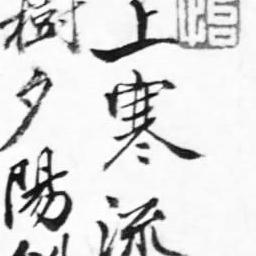 上寒流
樹夕陽斜